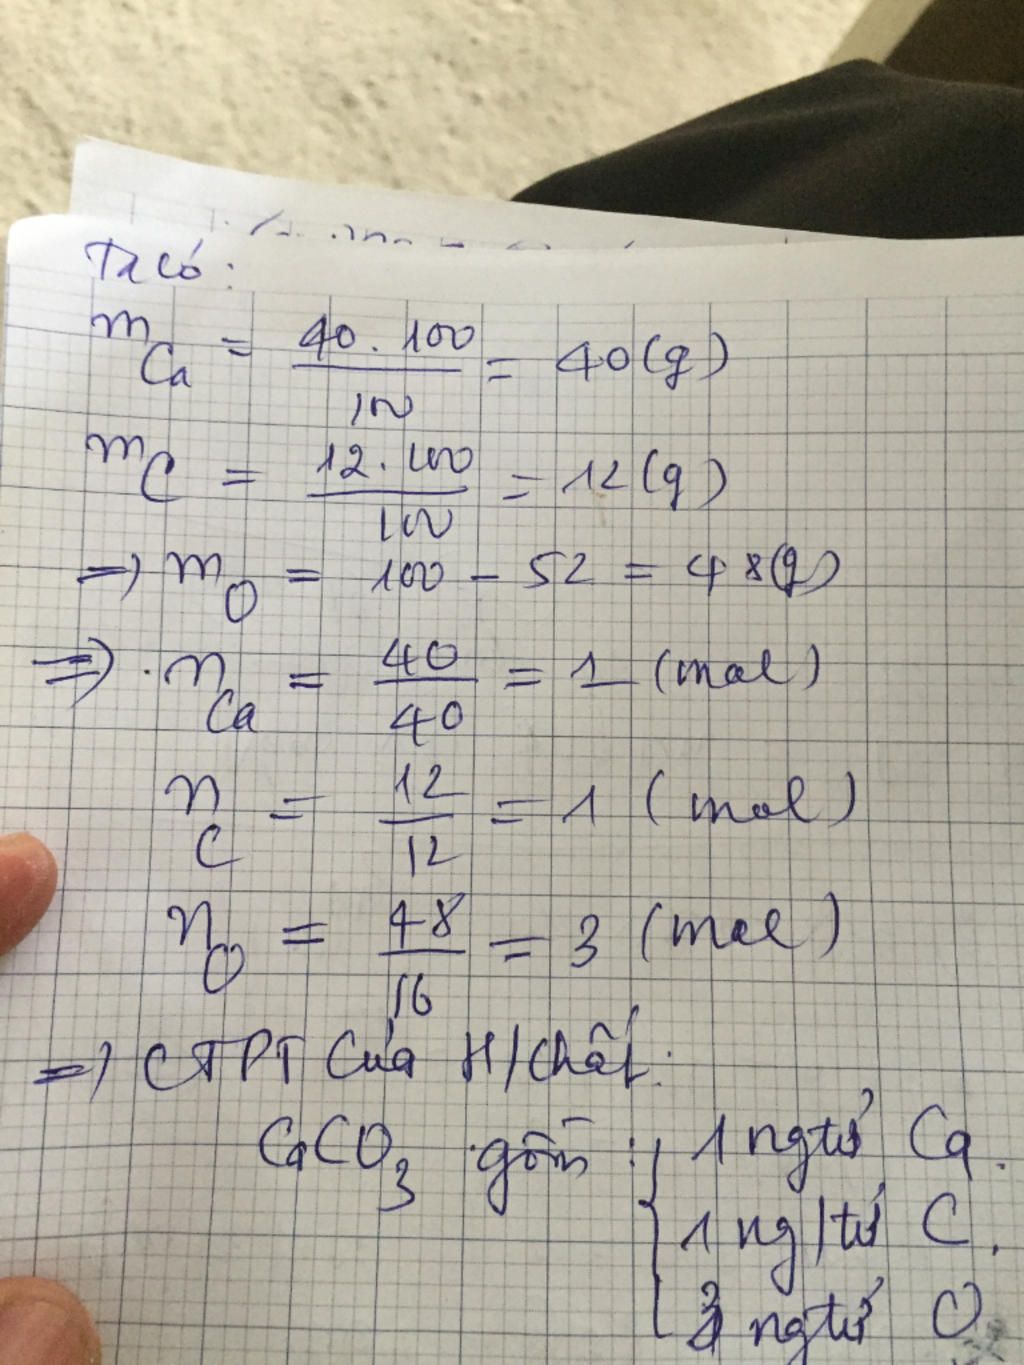 Ta có:
m_Ca = 40.100/100 = 40(g)
m_C = 12.100/100 = 12(g)
=> m_O = 100 - 52 = 48(g)
=> . n_Ca = 40/40 = 1 (mol)
n_C = 12/12 = 1 (mol)
n_O = 48/16 = 3 (mol)
=> CTPT của H/chất:
CaCO3 gồm : { 1 ngtử Ca.
1 ng/tử C.
3 ngtử O